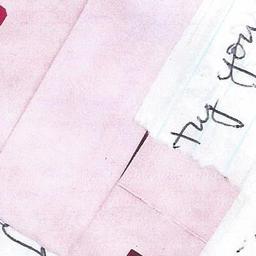 try you